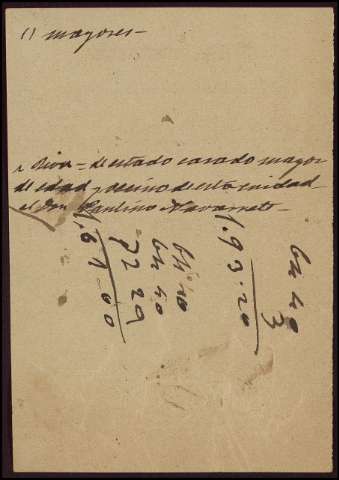 () mayores-
de estado casado mayor
de edad, vecino de esta ciudad
el Don Paulino Navarrete-
64 40
3
1.93.20
64 40
72 29
1.61 00